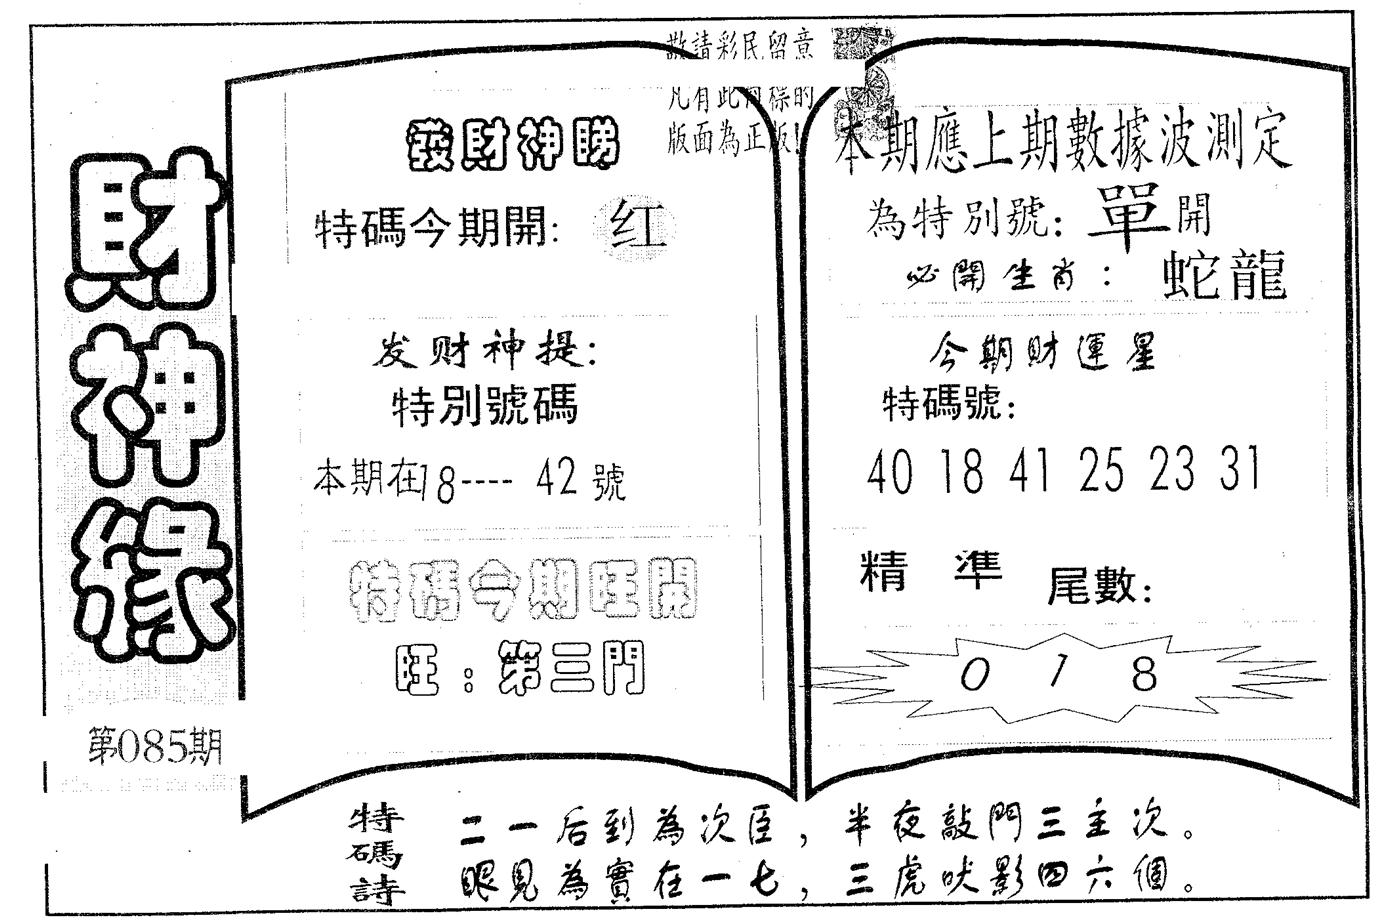 財神緣
第085期
敬請彩民留意
凡有此商標的
版面為正版!
發財神睇
特碼今期開: 红
发财神提:
特別號碼
本期在18---- 42號
特碼今期旺開
旺：第三門
本期應上期數據波測定
為特別號: 單開
必開生肖: 蛇龍
今期財運星
特碼號:
40 18 41 25 23 31
精準 尾數:
0 1 8
特碼詩
二一后到為次臣，半夜敲門三主次。
眼見為實在一七，三虎吠影四六個。